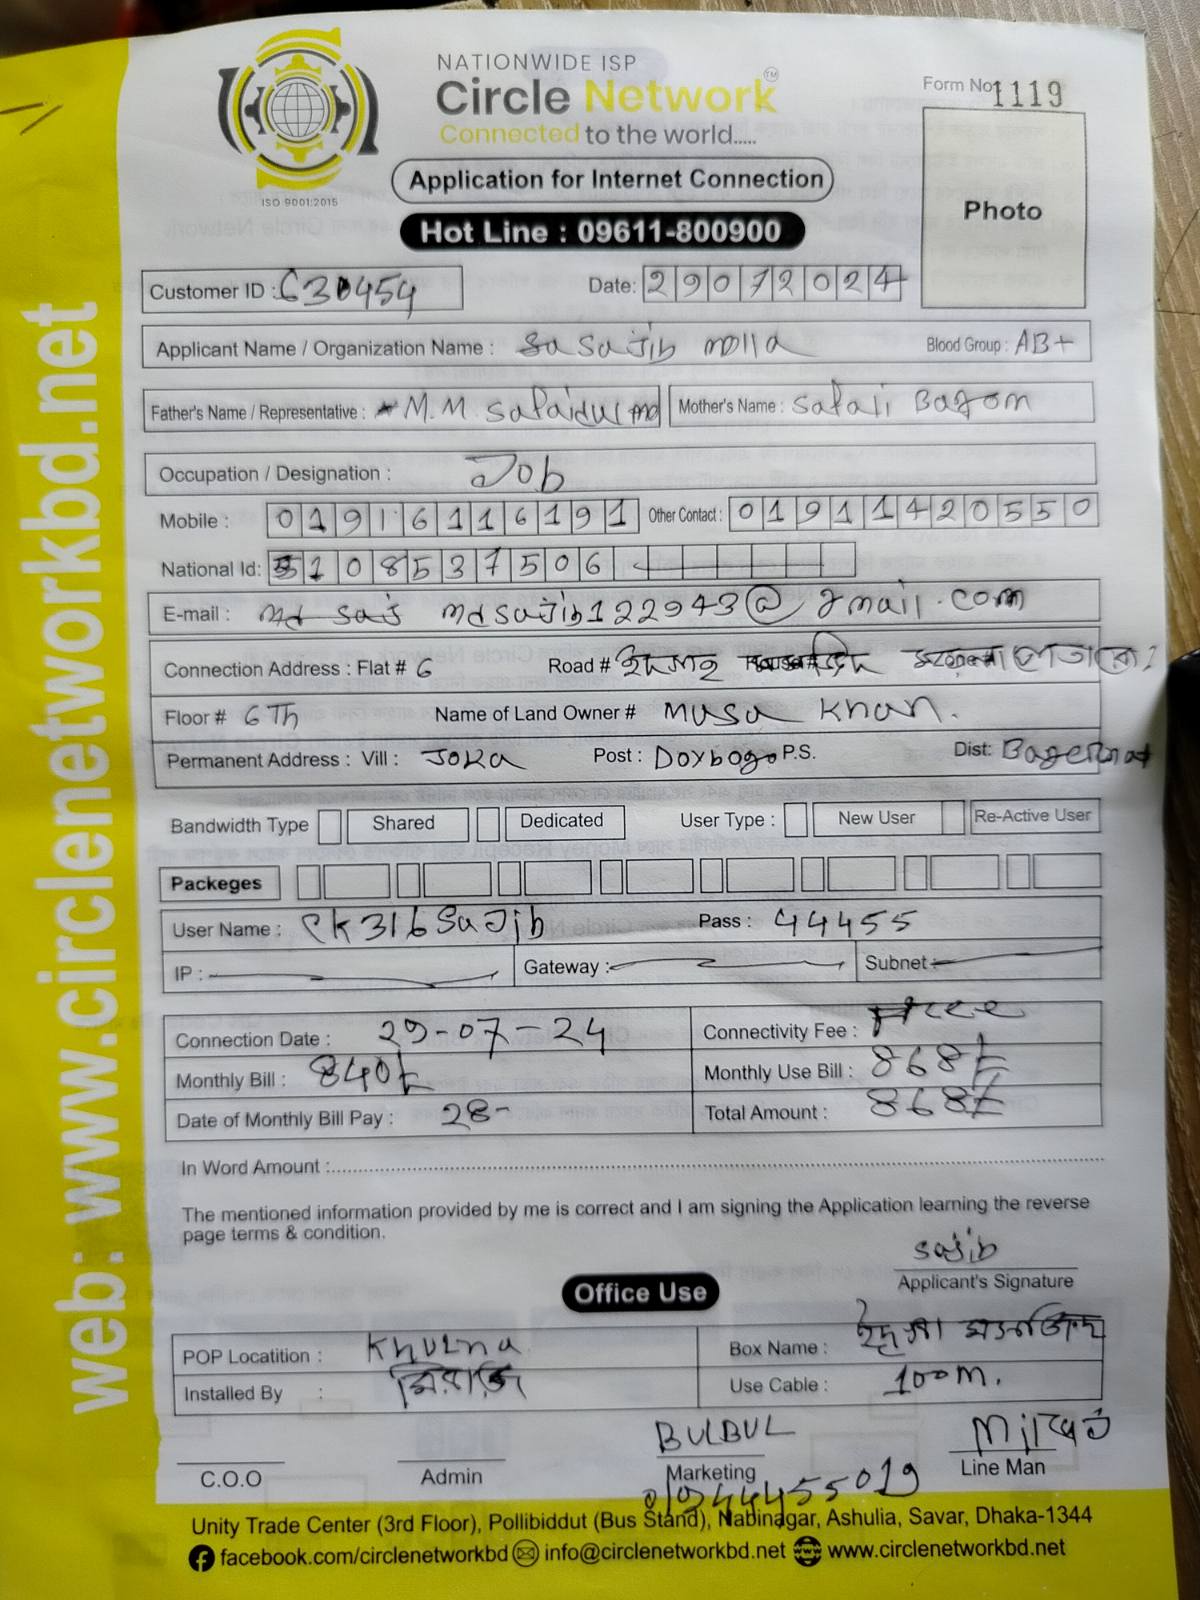 NATIONWIDE ISP
Circle Network TM
Connected to the world.....
ISO 9001:2015
Form No 1119
Photo
Application for Internet Connection
Hot Line : 09611-800900
Customer ID : C30454
Date: 29072024
Applicant Name / Organization Name : Sajib molla Blood Group : AB+
Father's Name / Representative : M.M. Safaidur md Mother's Name : Safali Bagom
Occupation / Designation : Job
Mobile : 01916116191 Other Contact : 01911420550
National Id: 5108537506
E-mail : mdsajib122943@gmail.com
Connection Address : Flat # 6 Road #
Floor # 6Th Name of Land Owner # Musa Khan.
Permanent Address : Vill : Joka Post : Doybogo P.S. Dist: Bagerhat
Bandwidth Type Shared Dedicated User Type : New User Re-Active User
Packeges
User Name : Ck316Sajib Pass : 44455
IP : Gateway : Subnet
Connection Date : 29-07-24 Connectivity Fee : Free
Monthly Bill : 840 Monthly Use Bill : 868
Date of Monthly Bill Pay : 28- Total Amount : 868
In Word Amount :
The mentioned information provided by me is correct and I am signing the Application learning the reverse
page terms & condition.
Sajib
Applicant's Signature
Office Use
POP Locatition : Khulna Box Name :
Installed By : মিরাজ Use Cable : 100m.
BULBUL Miraj
C.O.O Admin Marketing Line Man
01944455019
Unity Trade Center (3rd Floor), Pollibiddut (Bus Stand), Nabinagar, Ashulia, Savar, Dhaka-1344
facebook.com/circlenetworkbd info@circlenetworkbd.net www.circlenetworkbd.net
web: www.circlenetworkbd.net